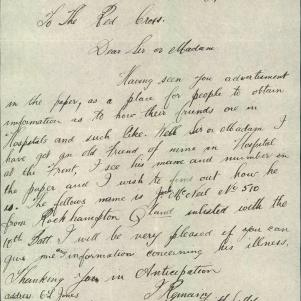 To The Red Cross.
Dear Sir or Madam
Having seen you advertisment
in the paper, as a place for people to obtain
information as to how their friends are in
Hospitals and such like. Well Sir or Madam I
have got an old Friend of mine in Hospital
at the Front, I see his name and number in
the paper and I wish to find out how he
is. The fellows name is McNeal No 570
from Rockhampton Qland enlisted with the
10th Batt I will be very pleased if you can
give me information concerning his illness,
Thanking You in Anticipation
address